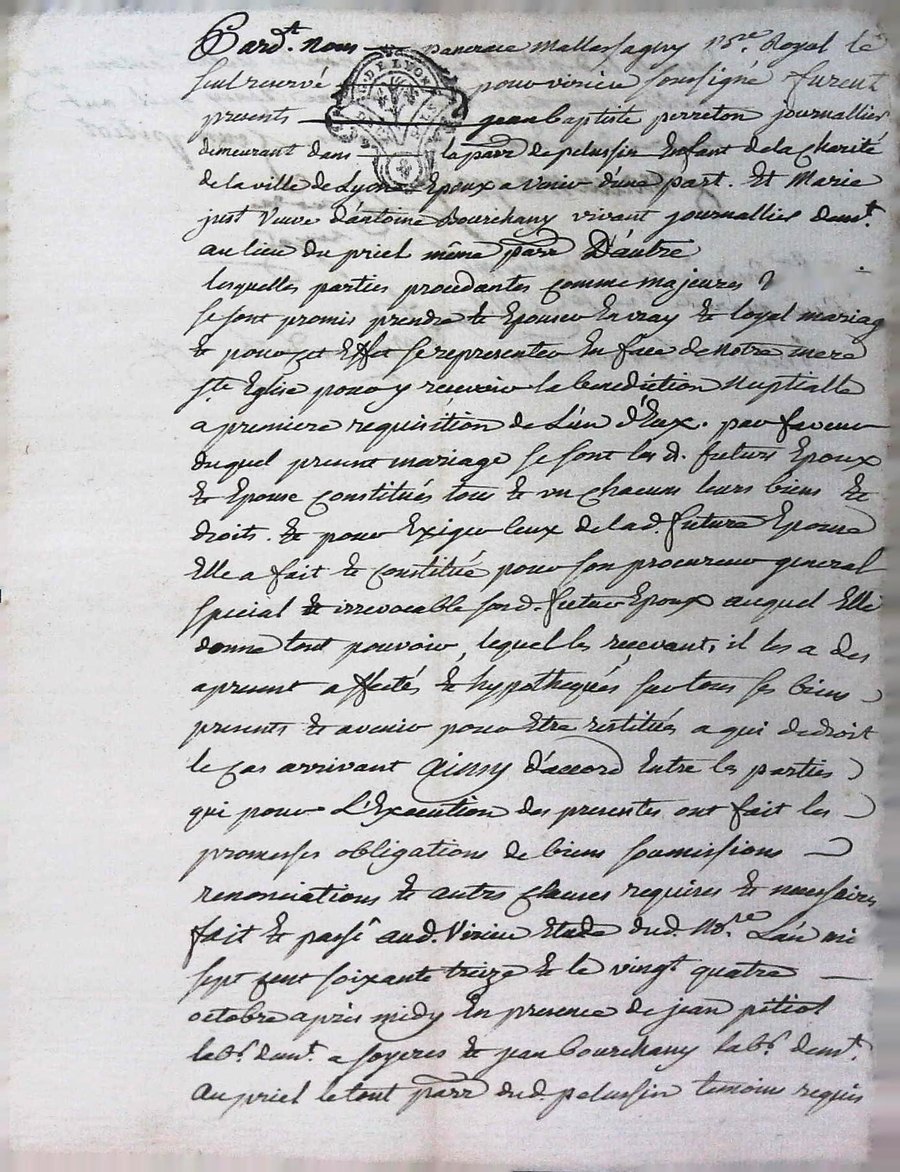 Pard.t nous pancrace Mallassagny n.re Royal le
seul reservé pour virieu soussigné furent
DE LYON
presents jean baptiste perreton journallier
demeurant dans la parr. de pelussin Enfant de la charité
de la ville de Lyon Epoux a venir d'une part. Et Marie
just veuve d'antoine Bourchany vivant journallier dem.t
au lieu du priel même parr. D'autre
lesquelles parties procedantes comme majeures
se sont promis prendre & Epouser En vray & loyal mariag
& pour cet Effet se representer En face de notre mere
s.te Eglise pour y recevoir la benediction Nuptialle
a premiere requisition de L'un d'Eux. par faveur
duquel present mariage se sont les d. futurs Epoux
& Epouse constitués tous & un chacuns leurs biens &
droits. & pour Exiger ceux de la d. future Epouse
Elle a fait & constitué pour son procureur general
special & irrevocable son d. futur Epoux auquel Elle
donne tout pouvoir, lequel les recevant, il les a des
apresent affectés & hypothequés sur tous ses biens
presents & avenir pour Etre restitués a qui de droit
le cas arrivant ainsy d'accord Entre les parties
qui pour L'Execution des presentes ont fait les
promesses obligations de biens soumissions
renonciations & autres clauses requises & necessaires
fait & passé aud. Virieu Etude dud. No.re L'an mi
sept cent soixante treize & le vingt quatre
octobre après midy En presence de jean petiot
lab.r dem.t a soyeres & jean bourchany lab.r dem.t
au priel le tout parr. dud pelussin temoins requis